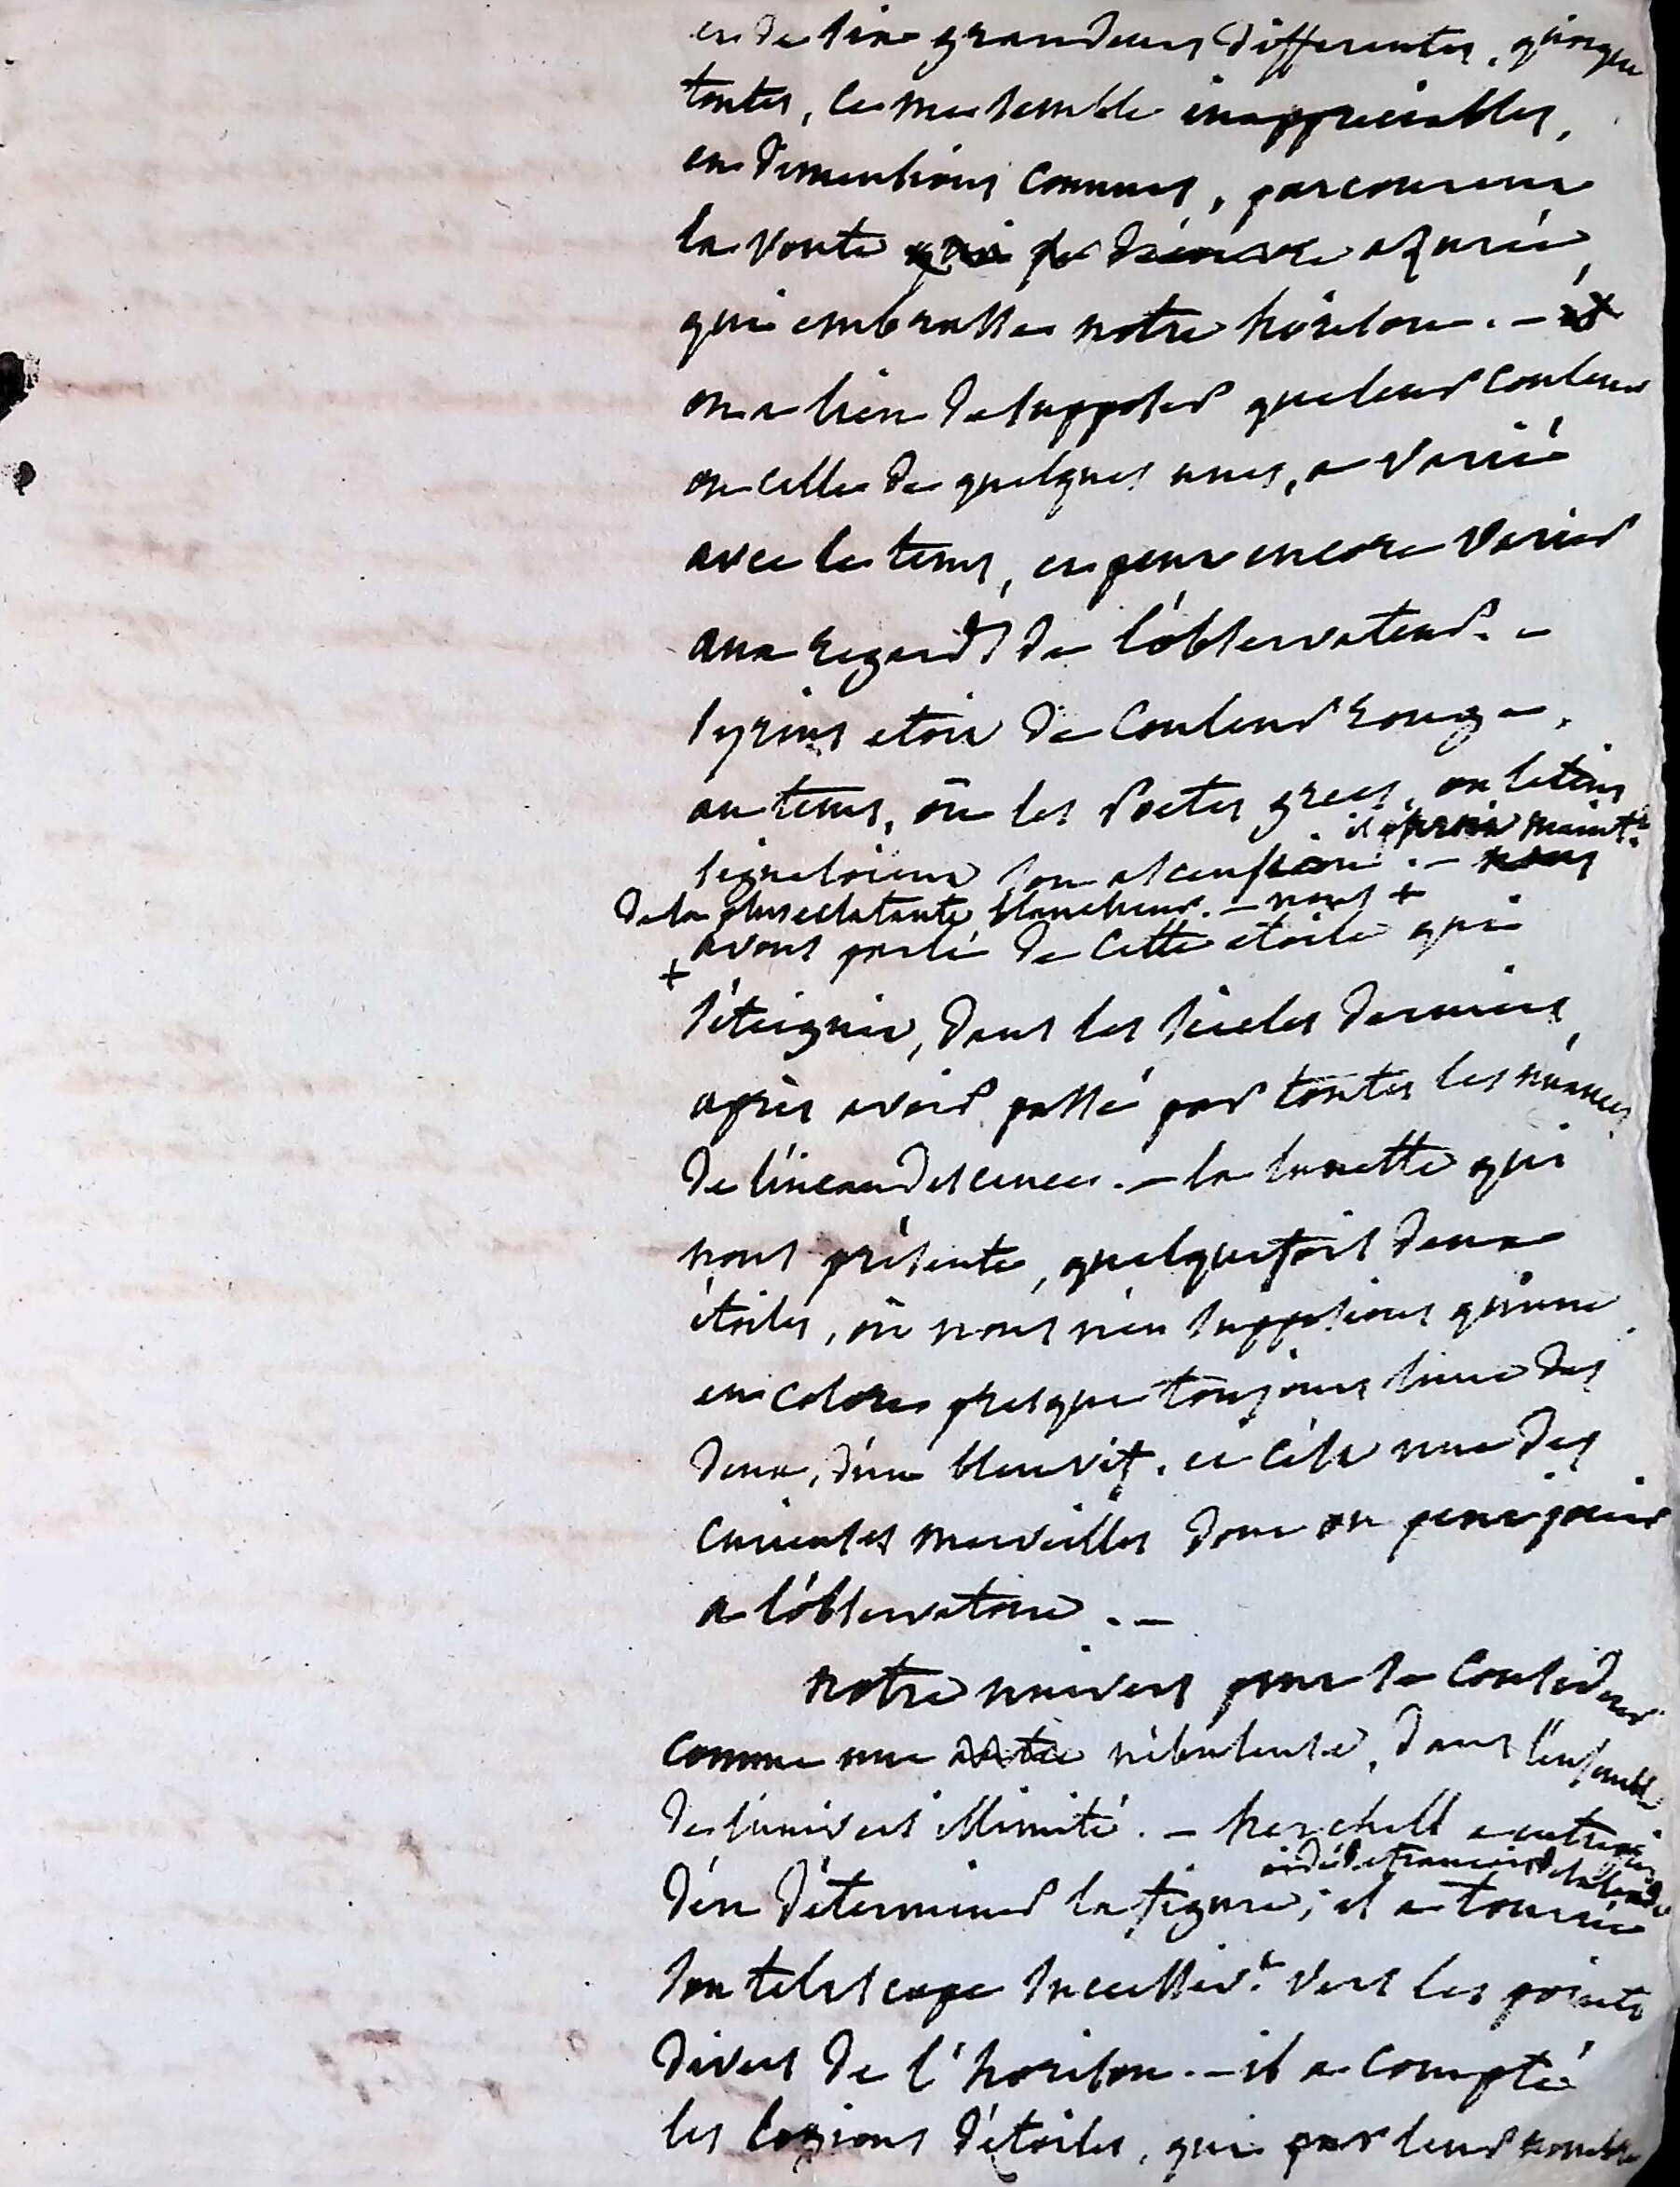 et de six grandeurs differentes, quoique
toutes, ce me semble inappreciables,
en dimensions connues, parcourent
la voute azurée,
qui embrasse notre horison. -
on a lieu de supposer que leur couleur
ou celle de quelques unes, a varié
avec le tems, et peut encore varier
aux regards de l'observateur. -
syrius etoit de couleur rouge,
au tems, où les Poetes grecs, ou latins
signaloient son ascension. - nous
. il paroit maint.t
de la plus eclatante blancheur. - nous +
+ avons parlé de cette etoile qui
s'éteignit, dans les siecles derniers,
après avoir passé par toutes les nuances
de l'incandescence. - la lunette qui
nous présente, quelquefois deux
étoiles, où nous n'en supposions qu'une
en colore presque toujours l'une des
deux, d'un bleu vif. et c'est une des
curieuses merveilles dont on peut jouir
a l'observatoire. -
notre univers peut se considerer
comme une nébuleuse, dans l'ensemble
de l'univers illimité. - herchell a entrepris
d'en déterminer la figure; il a tourné
son telescope successiv.t vers les points
divers de l'horison. - il a compté
les légions d'étoiles, qui par leur nombre